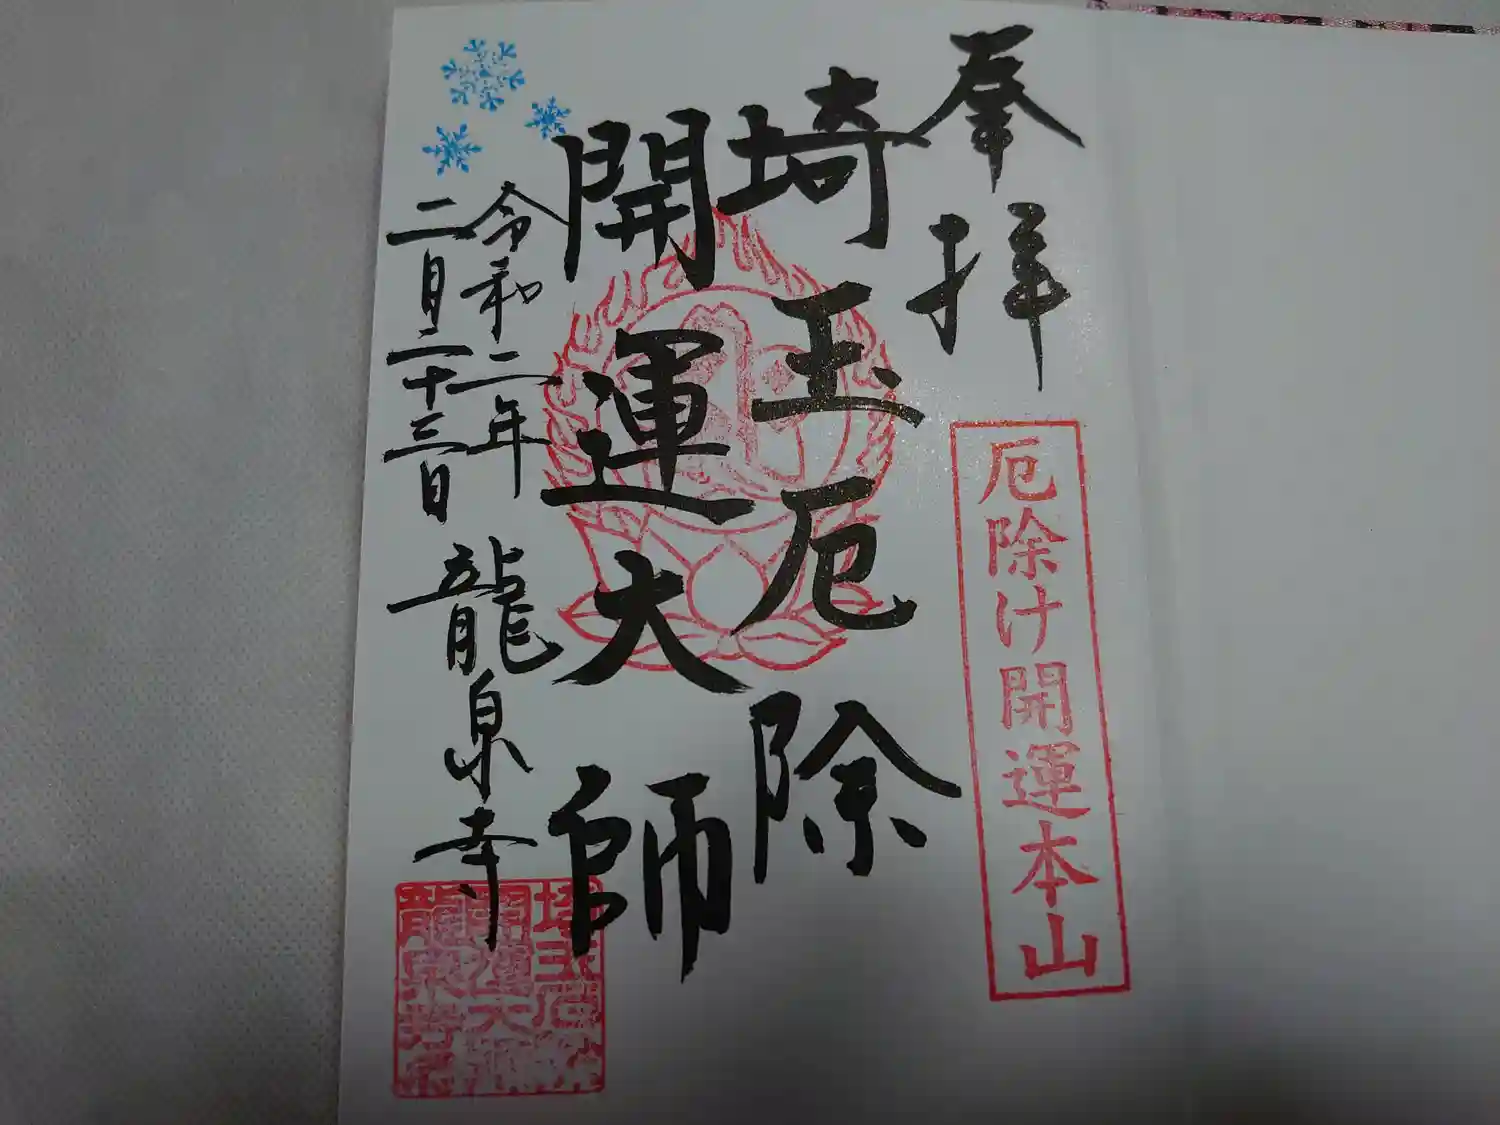 奉拝
厄除け開運本山
埼玉厄除
開運大師
令和二年
二月二十三日
龍泉寺
埼玉厄除
開運大師
龍泉寺